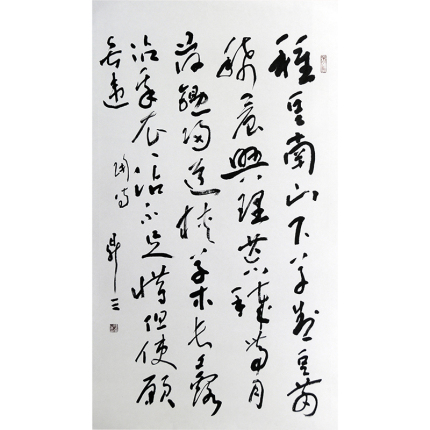 種豆南山下草盛豆苗
稀晨興理荒穢帶月
荷鋤歸道狹草木長夕露
沾我衣〻沾不足惜但使願
無違
陶詩
鼎三